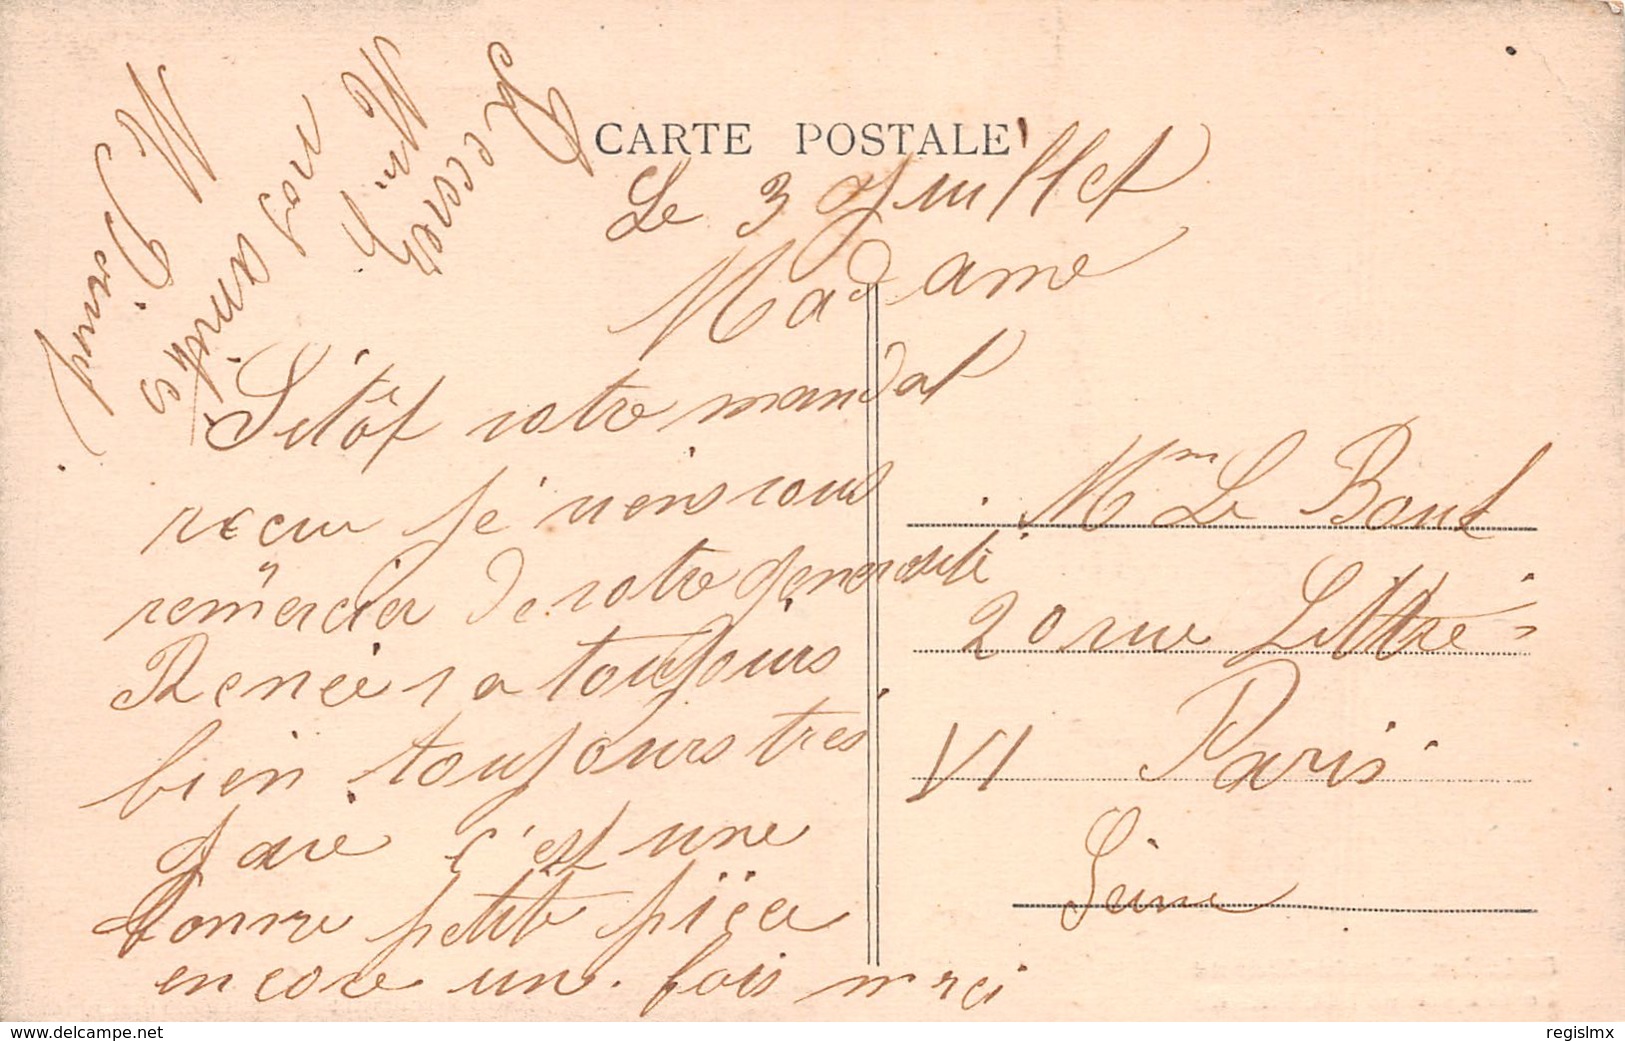 CARTE POSTALE
Le 3 Juillet
Madame
Sitôt votre mandat
recu je viens vous
remercier de votre generosité
Renée va toujours
bien toujours tres
gaie c'est une
bonne petite pièce
encore une fois merci
Recevez
Mm
nos amitiés
M
Mm Le Bout
20 rue Littré
VI Paris
Seine
www.delcampe.net
regislmx